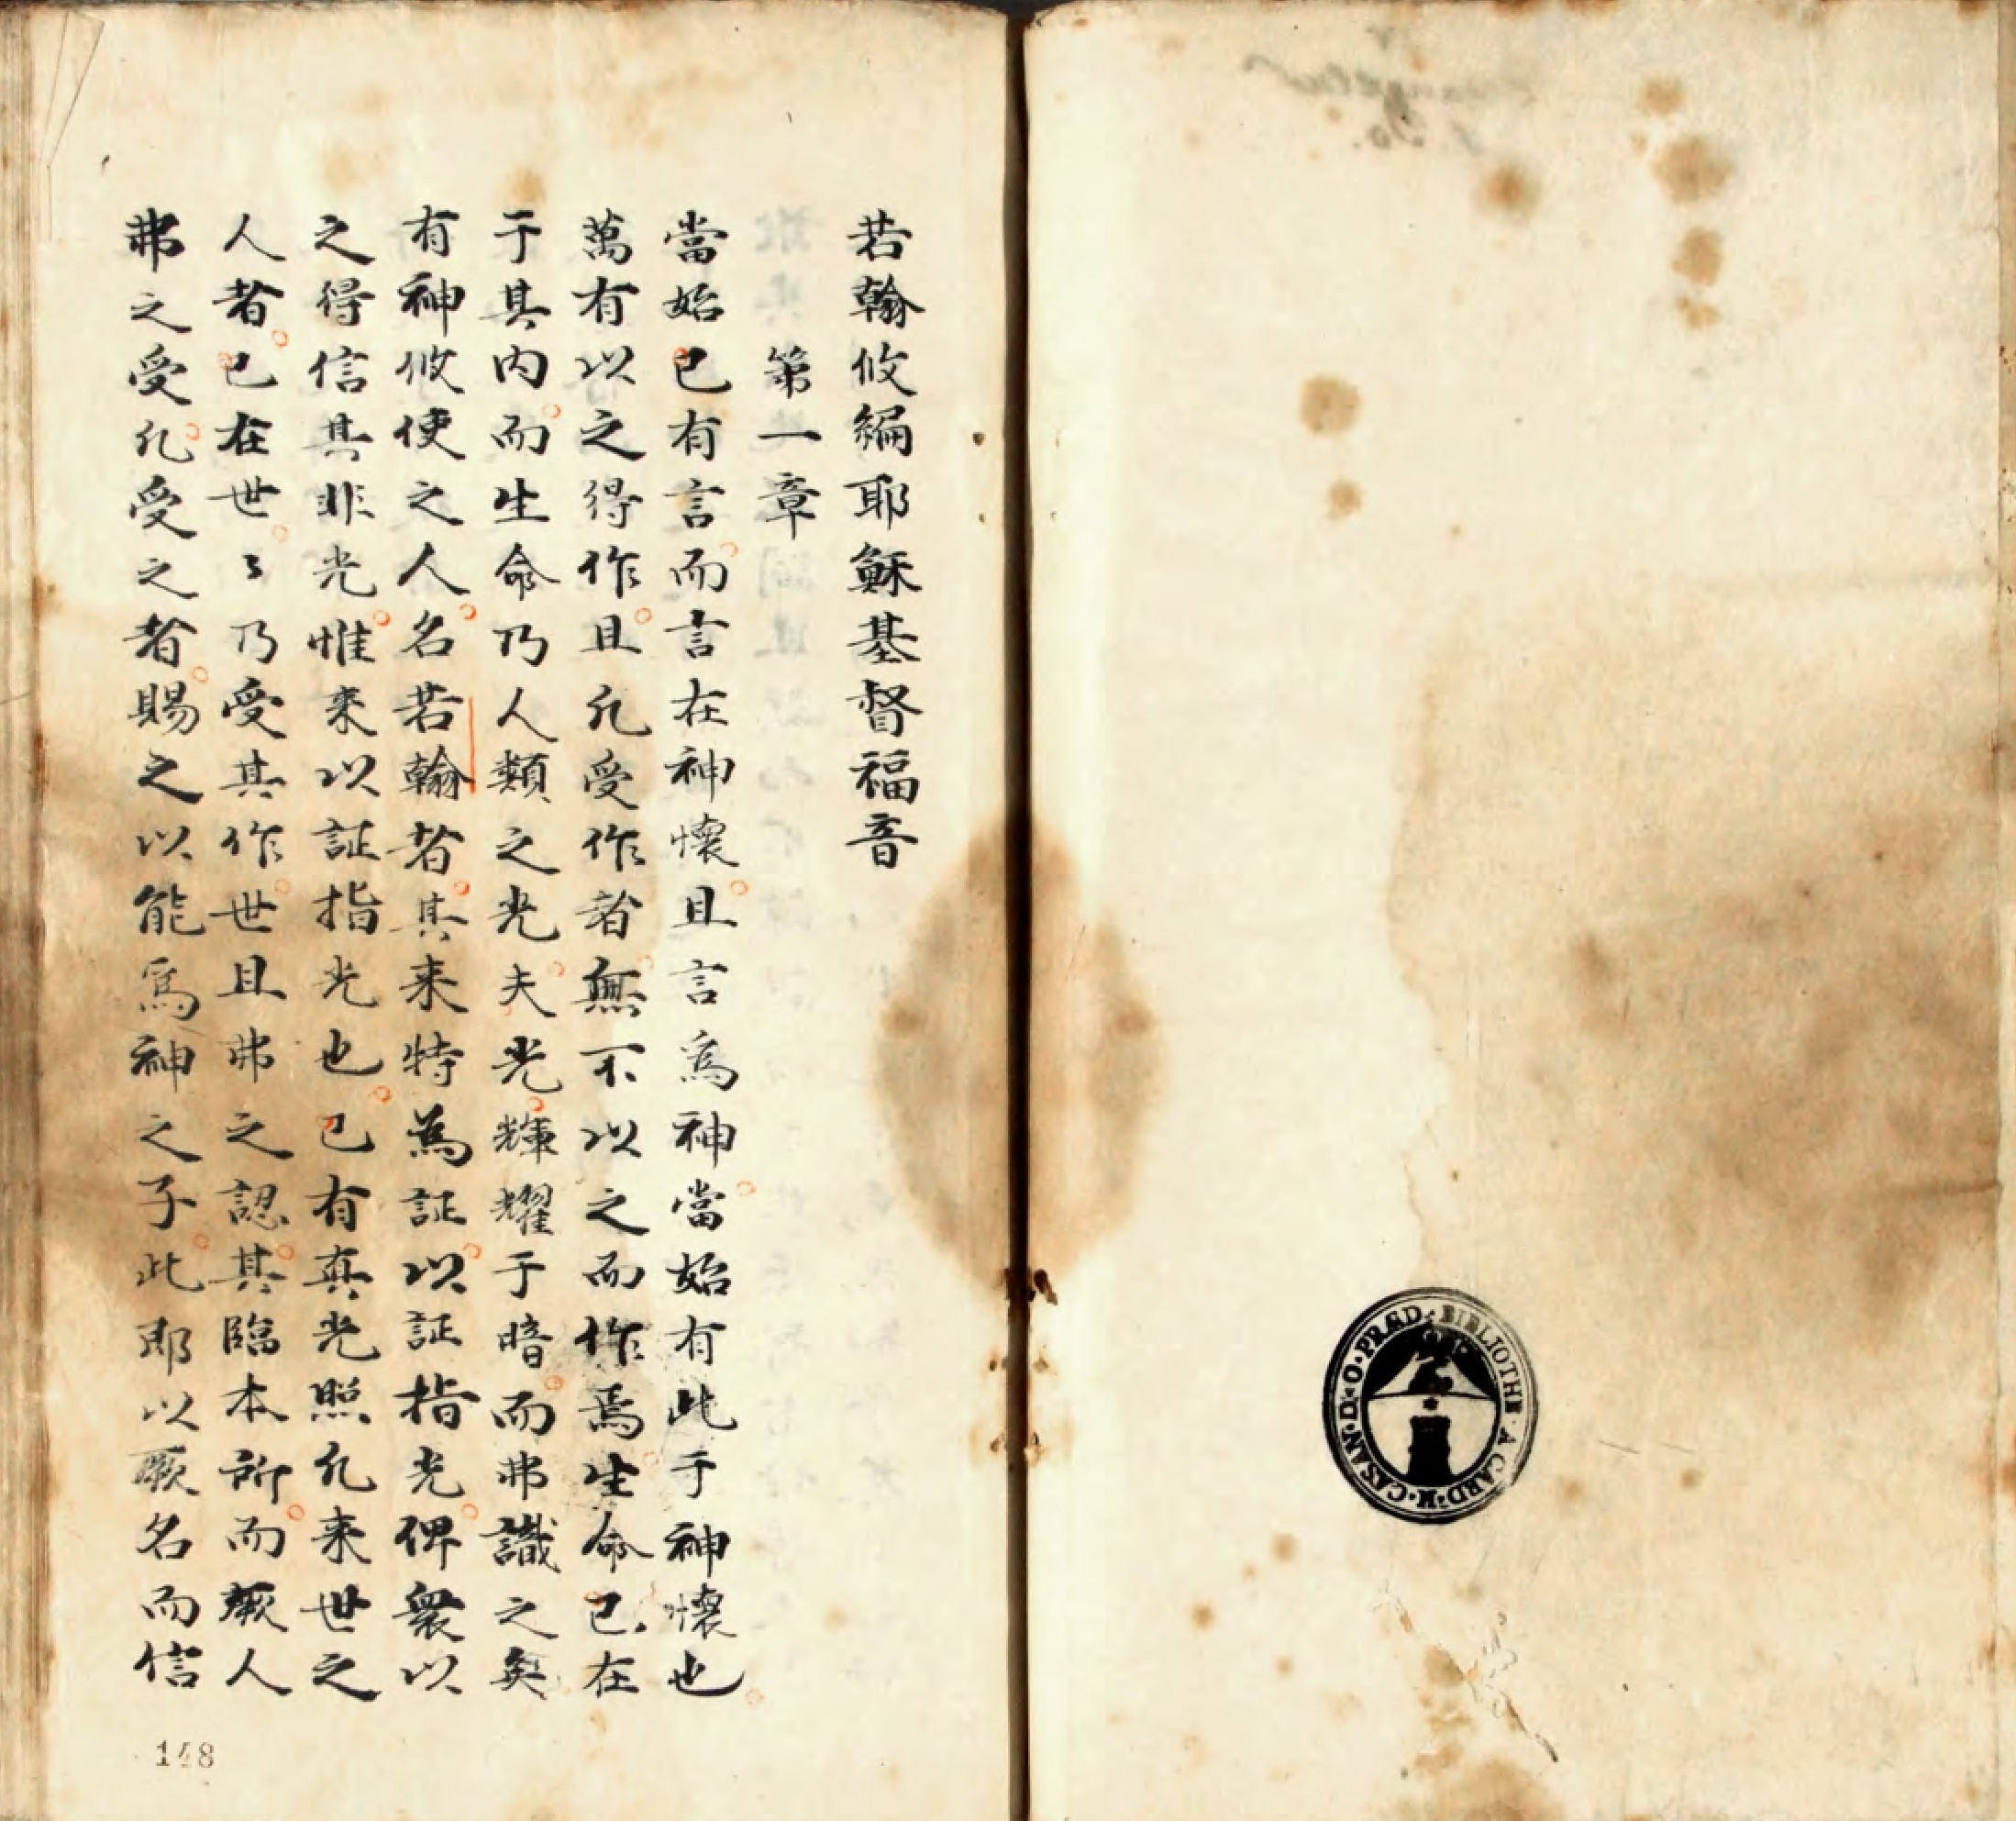 若翰攸編耶穌基督福音
第一章
當始已有言而言在神懷且言爲神當始有此于神懷也
萬有以之得作且凡受作者無不以之而作焉生命已在
于其内而生命乃人類之光夫光輝耀于暗而弗識之矣
有神攸使之人名若翰者其来特為証以証指光俾衆以
之得信其非光惟来以証指光也已有真光照凡来世之
人者已在世〻乃受其作世且弗之認其臨本所而厥人
弗之受凡受之者賜之以能爲神之子此即以厥名而信
148
BIBLIOTHE · A CARD · H · CASAN · D · O · PRÆD ·